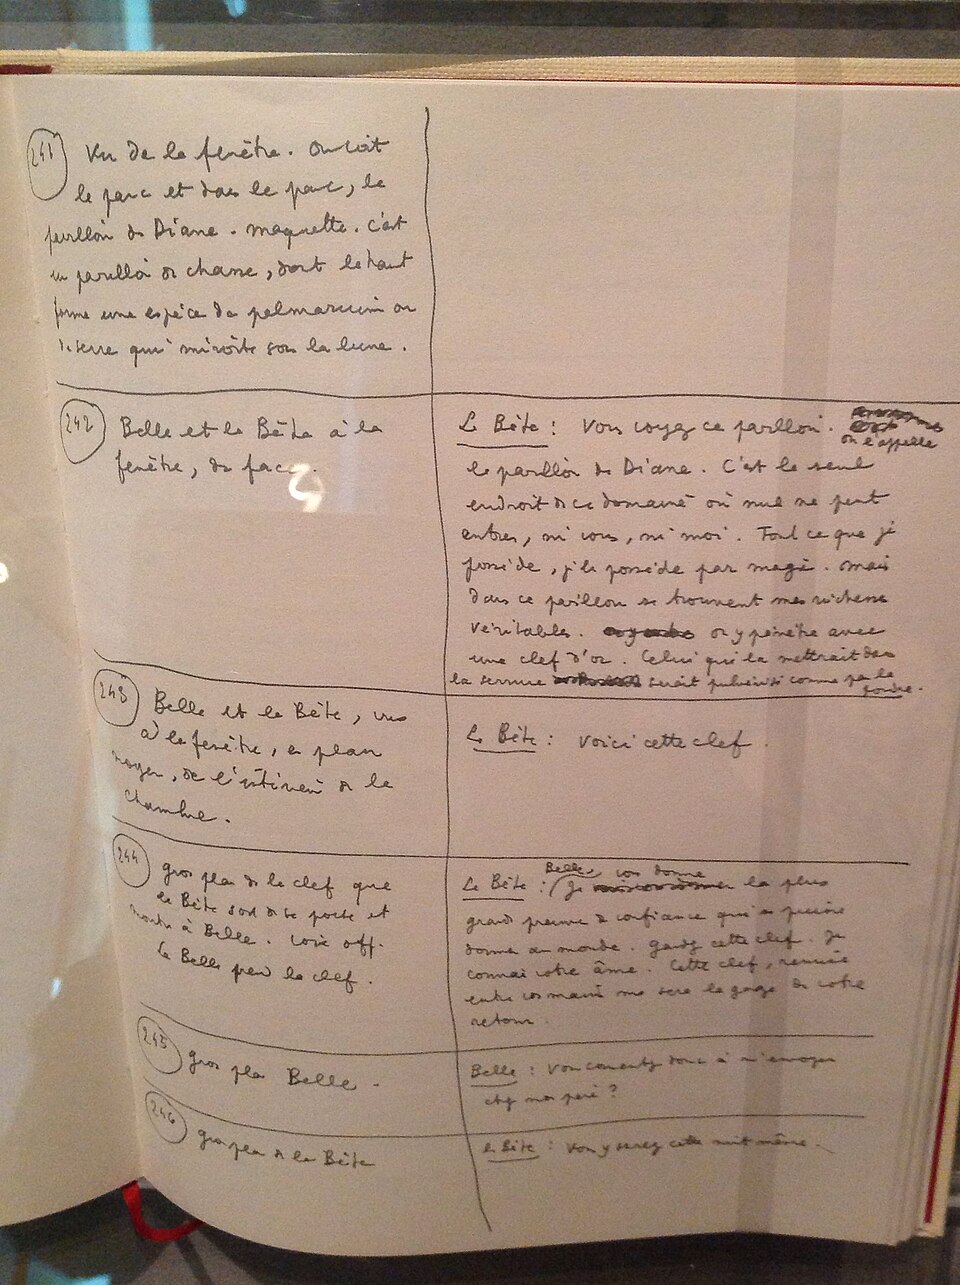 241
Vu de la fenêtre. On voit
le parc et dans le parc, le
pavillon de Diane. maquette. C'est
un pavillon de chasse, dont le haut
forme une espèce de palmarium ou
de serre qui miroite sous la lune.
242
Belle et la Bête à la
fenêtre, de face.
La Bête : Vous voyez ce pavillon.
on l'appelle
le pavillon de Diane. C'est le seul
endroit de ce domaine où nul ne peut
entrer, ni vous, ni moi. Tout ce que je
possède, je le possède par magie. mais
dans ce pavillon se trouvent mes richesses
véritables. on y pénètre avec
une clef d'or. Celui qui la mettrait dans
la serrure serait pulvérisé comme par la
foudre.
243
Belle et la Bête, vus
à la fenêtre, en plan
moyen, de l'intérieur de la
chambre.
La Bête : Voici cette clef.
244
gros plan de la clef que
la Bête sort de sa poche et
montre à Belle. voix off.
La Belle prend la clef.
Belle, vous donne
La Bête : (Je la plus
grande preuve de confiance qu'on puisse
donner au monde. gardez cette clef. Je
connais votre âme. Cette clef, remise
entre vos mains me sera le gage de votre
retour.
245
gros plan Belle.
Belle : Vous consentez donc à m'envoyer
chez mon père ?
246
gros plan de la Bête
La Bête : Vous y serez cette nuit même.